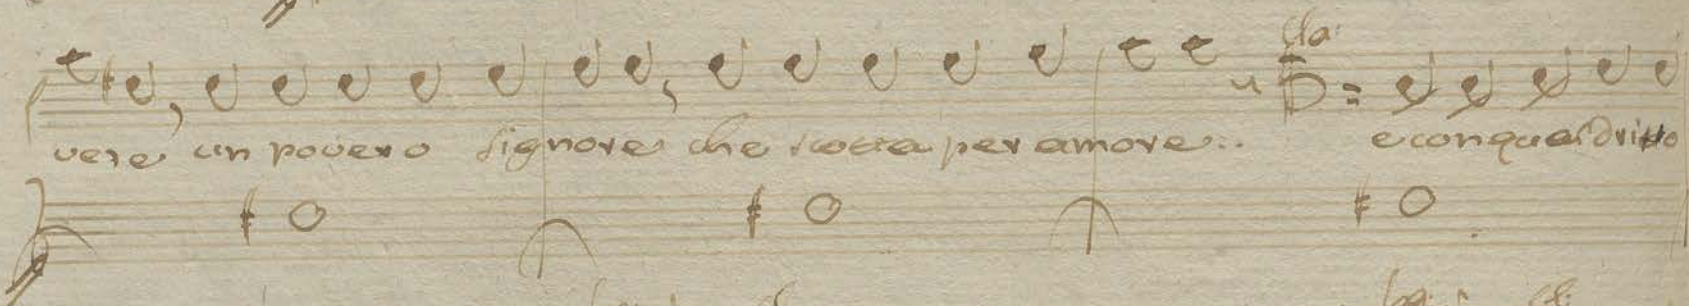 Cla:
vere un povero signore che scotta per amore.. e con qual dritto